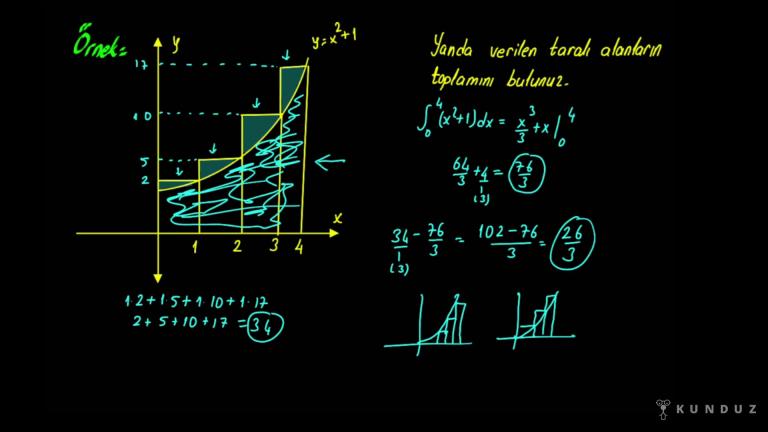 Örnek=
y
y=x²+1
17
10
5
2
1 2 3 4
x
1.2+1.5+1.10+1.17
2+5+10+17=34
Yanda verilen taralı alanların
toplamını bulunuz.
∫₀⁴(x²+1)dx = x³/3+x|₀⁴
64/3+4/1=76/3
(3)
34/1-76/3 = 102-76/3=26/3
(3)
KUNDUZ